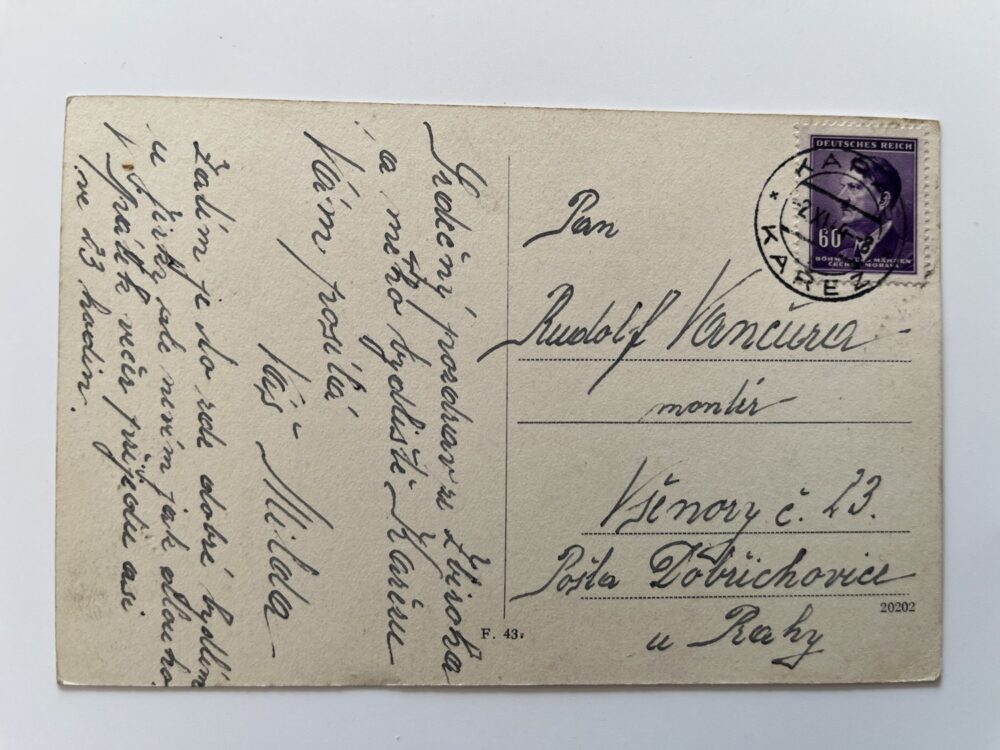 Srdečný pozdrav ze Zbiroha
a mého bydliště Kařízu
Vám posílá
Váš Milda
Zatím je to zde dobré bydlím
u Jirky ale nevím jak dlouho.
V pátek večer přijedu asi
ve 23 hodin.
F. 43
DEUTSCHES REICH
60
BÖHMEN UND MÄHREN
ČECHY A MORAVA
KAREZ
Pan
Rudolf Vančura
montér
Všenory č. 23.
Pošta Dobřichovice
u Prahy
20202